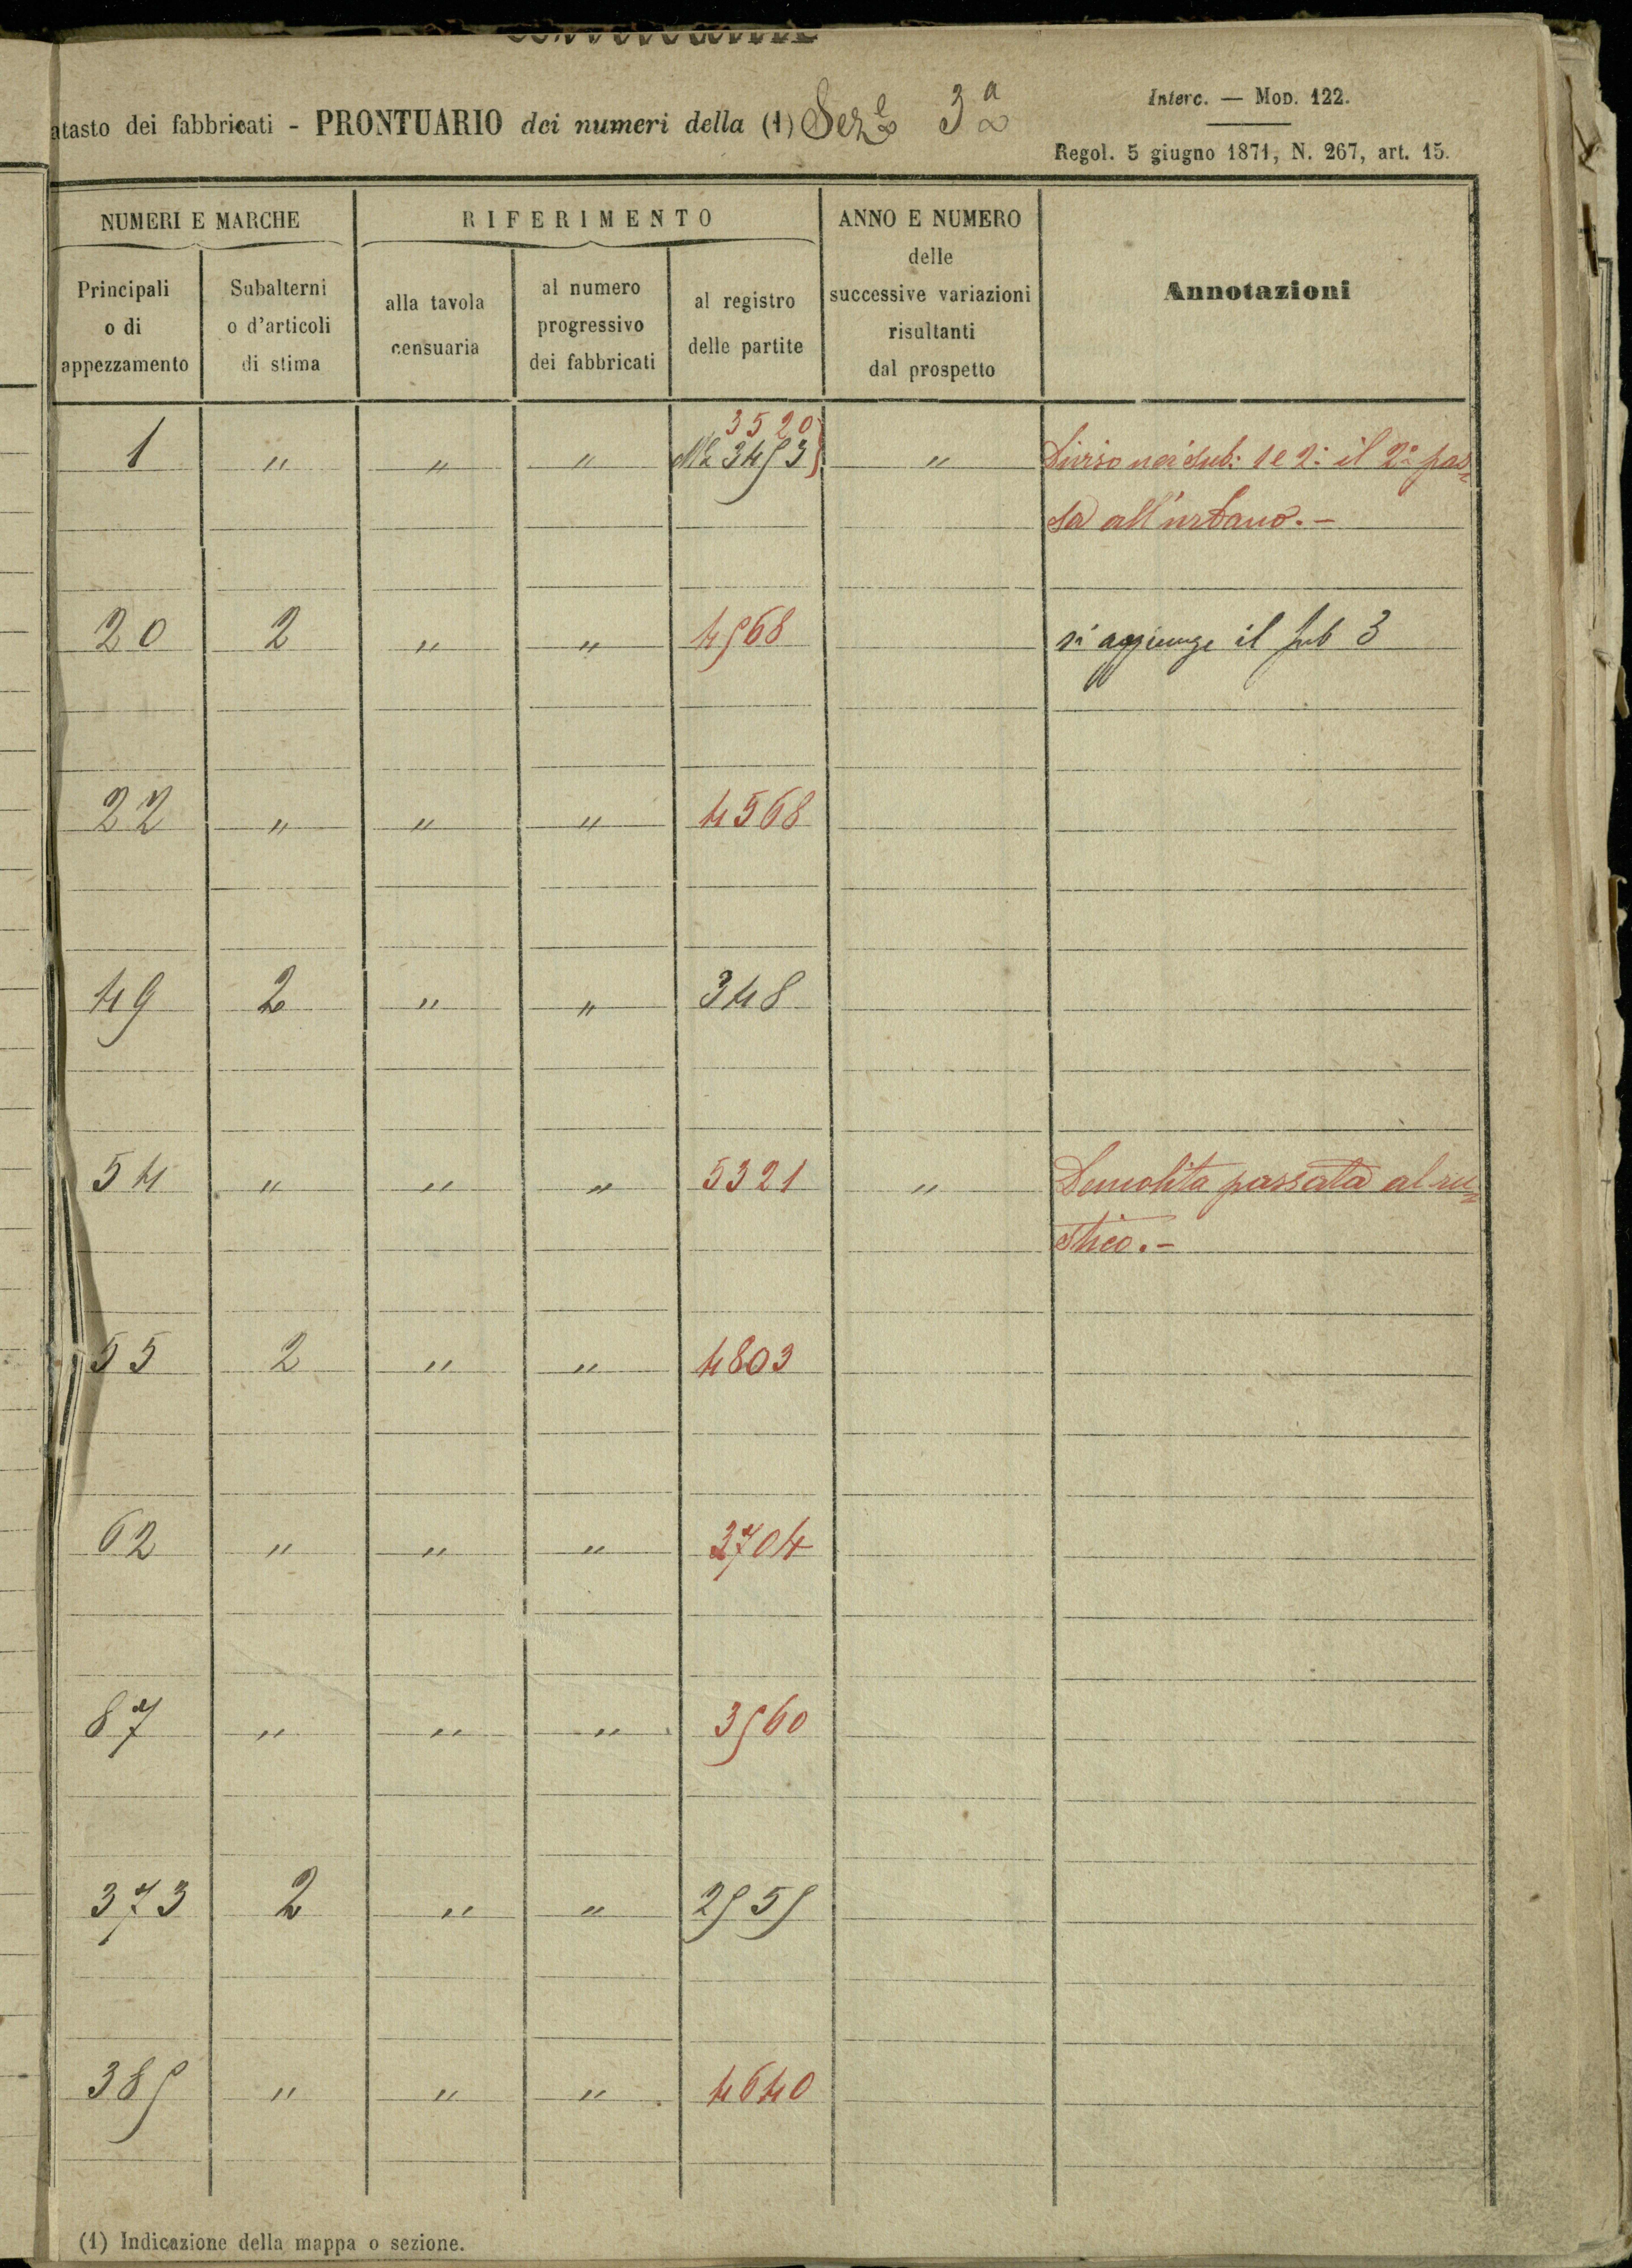 atasto dei fabbricati - PRONTUARIO dei numeri della (1) Sez.e 3a
Interc. — Mod. 122.
Regol. 5 giugno 1871, N. 267, art. 15.
NUMERI E MARCHE
RIFERIMENTO
ANNO E NUMERO
delle
successive variazioni
risultanti
dal prospetto
Annotazioni
Principali
o di
appezzamento
Subalterni
o d'articoli
di stima
alla tavola
censuaria
al numero
progressivo
dei fabbricati
al registro
delle partite
3520
1 " " " 3493 " Diviso nei sub: 1 e 2: il 2° pas=
sa all'urbano. -
20 2 " " 4968 si aggiunge il sub 3
22 " " " 4568
49 2 " " 348
54 " " " 5321 " Demolita passata al ru=
stico. -
55 2 " " 4803
62 " " " 3704
87 " " " 3960
373 2 " " 2959
389 " " " 4640
(1) Indicazione della mappa o sezione.